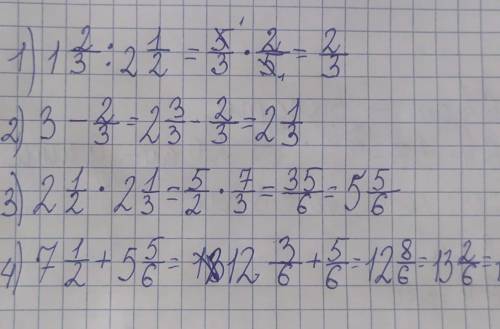 1) 1 2/3 : 2 1/2 = 5/3 · 2/5 = 2/3
2) 3 - 2/3 = 2 3/3 - 2/3 = 2 1/3
3) 2 1/2 · 2 1/3 = 5/2 · 7/3 = 35/6 = 5 5/6
4) 7 1/2 + 5 5/6 = 12 3/6 + 5/6 = 12 8/6 = 13 2/6 =